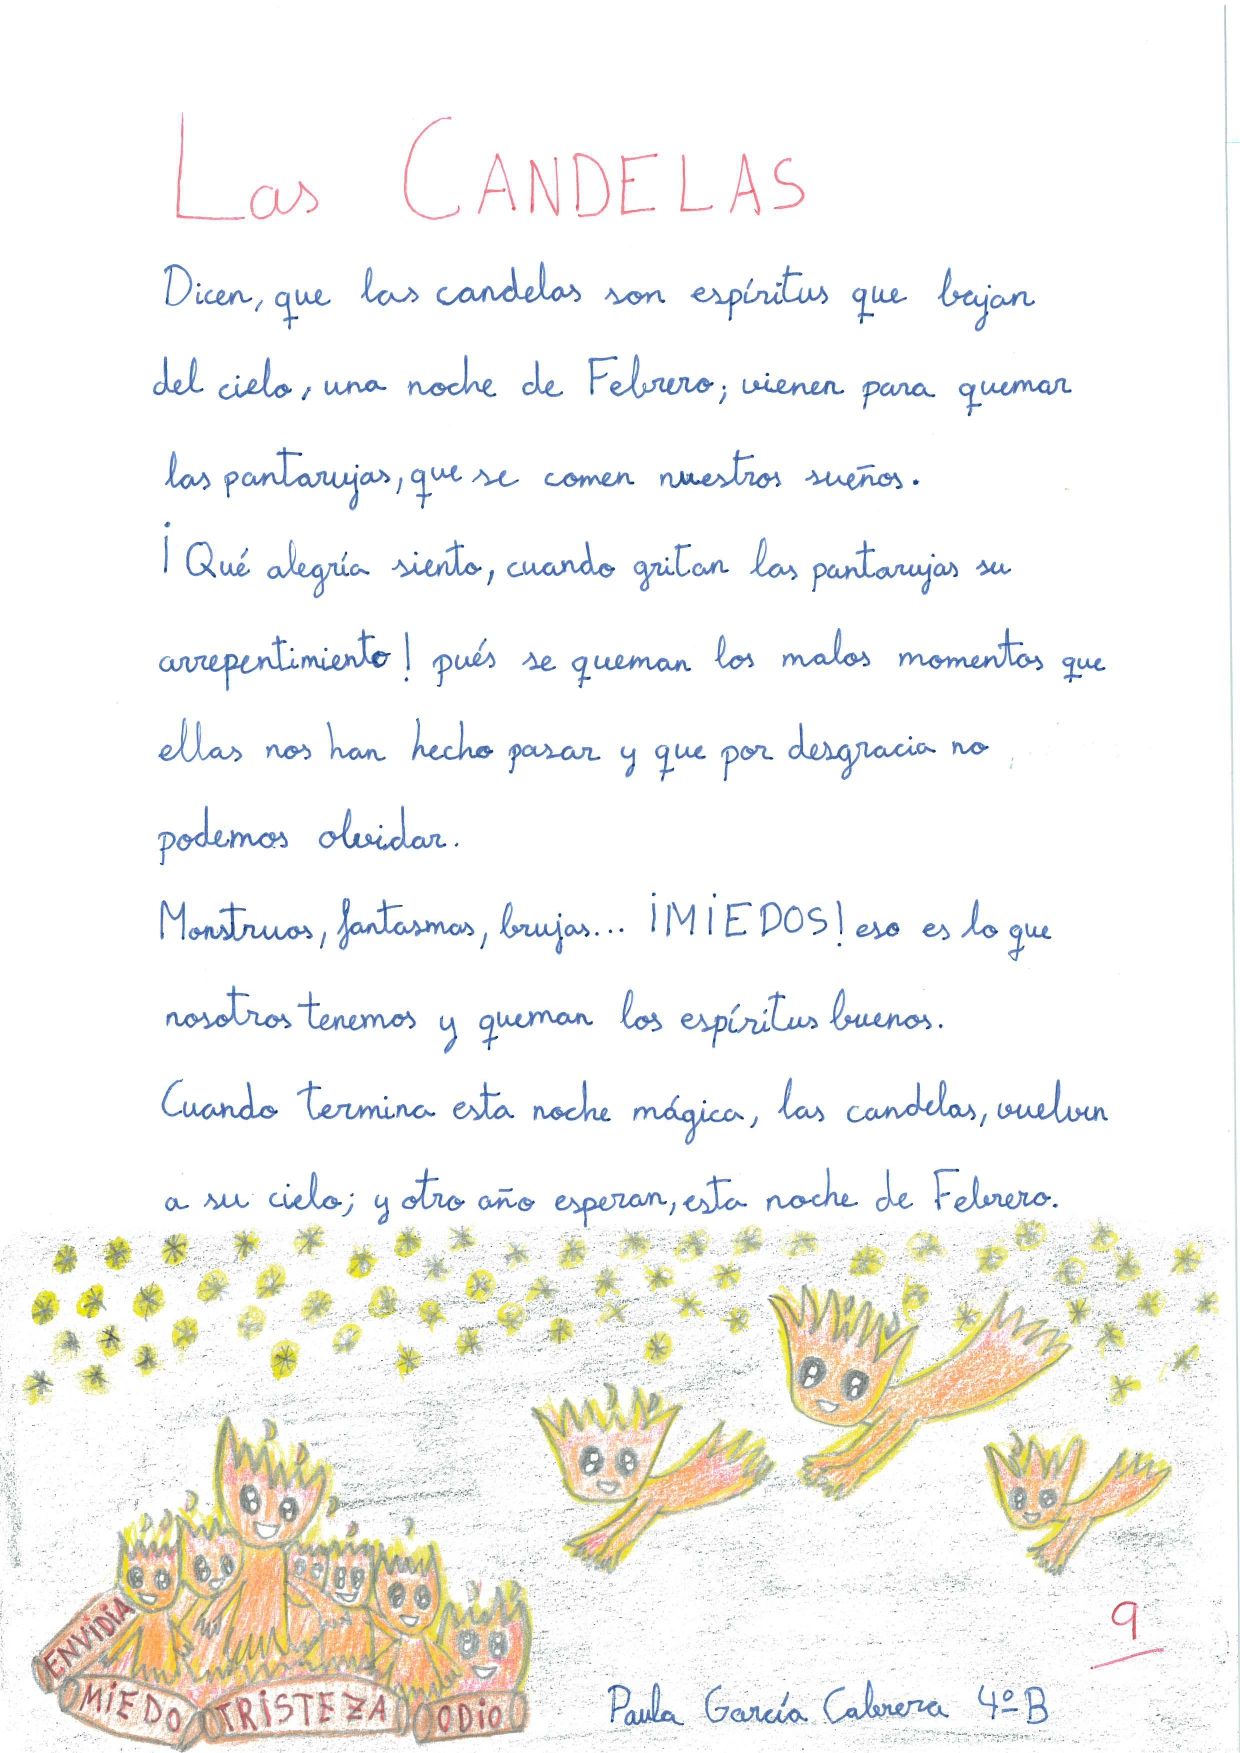 Las CANDELAS
Dicen, que las candelas son espíritus que bajan
del cielo, una noche de Febrero; vienen para quemar
las pantarujas, que se comen nuestros sueños.
¡Qué alegría siento, cuando gritan las pantarujas su
arrepentimiento! pués se queman los malos momentos que
ellas nos han hecho pasar y que por desgracia no
podemos olvidar.
Monstruos, fantasmas, brujas... ¡MIEDOS! eso es lo que
nosotros tenemos y queman los espíritus buenos.
Cuando termina esta noche mágica, las candelas, vuelven
a su cielo; y otro año esperan, esta noche de Febrero.
ENVIDIA
MIEDO
TRISTEZA
ODIO
9
Paula García Cabrera 4º B